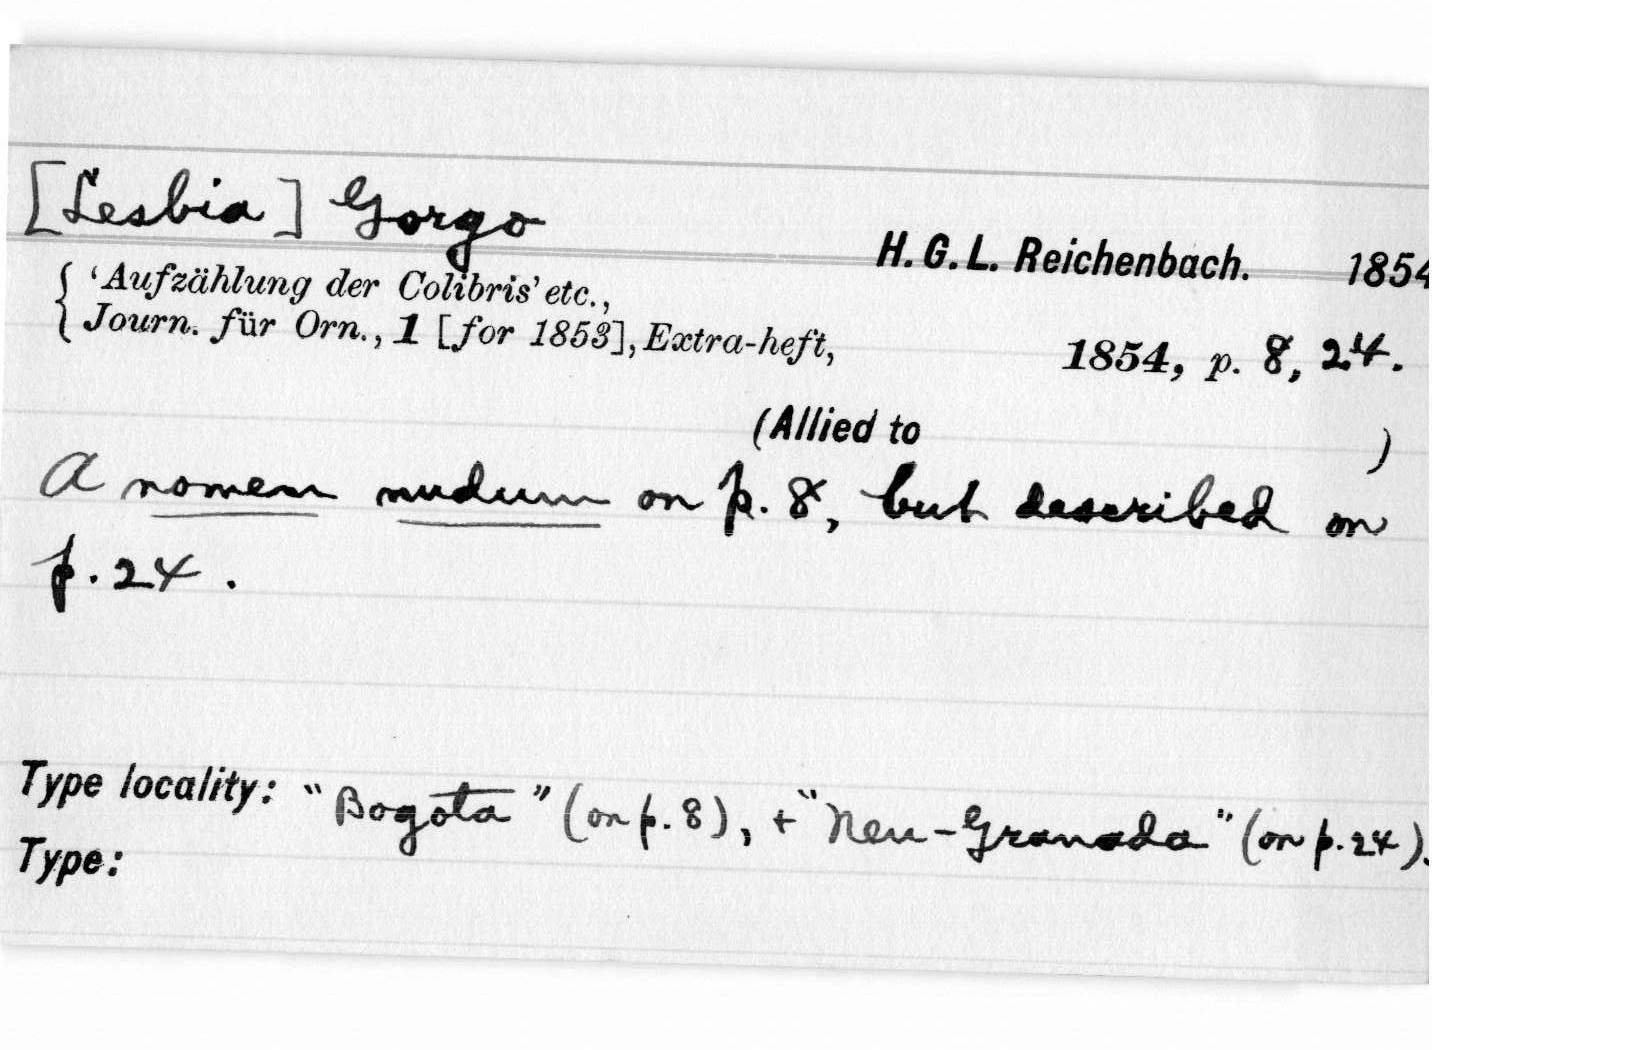 [Lesbia] Gorgo
H. G. L. Reichenbach. 1854
'Aufzählung der Colibris' etc.,
Journ. für Orn., 1 [for 1853], Extra-heft, 1854, p. 8, 24.
(Allied to )
A nomen nudum on p. 8, but described on
p. 24.
Type locality: "Bogota" (on p. 8), + "Neu-Granada" (on p. 24).
Type: